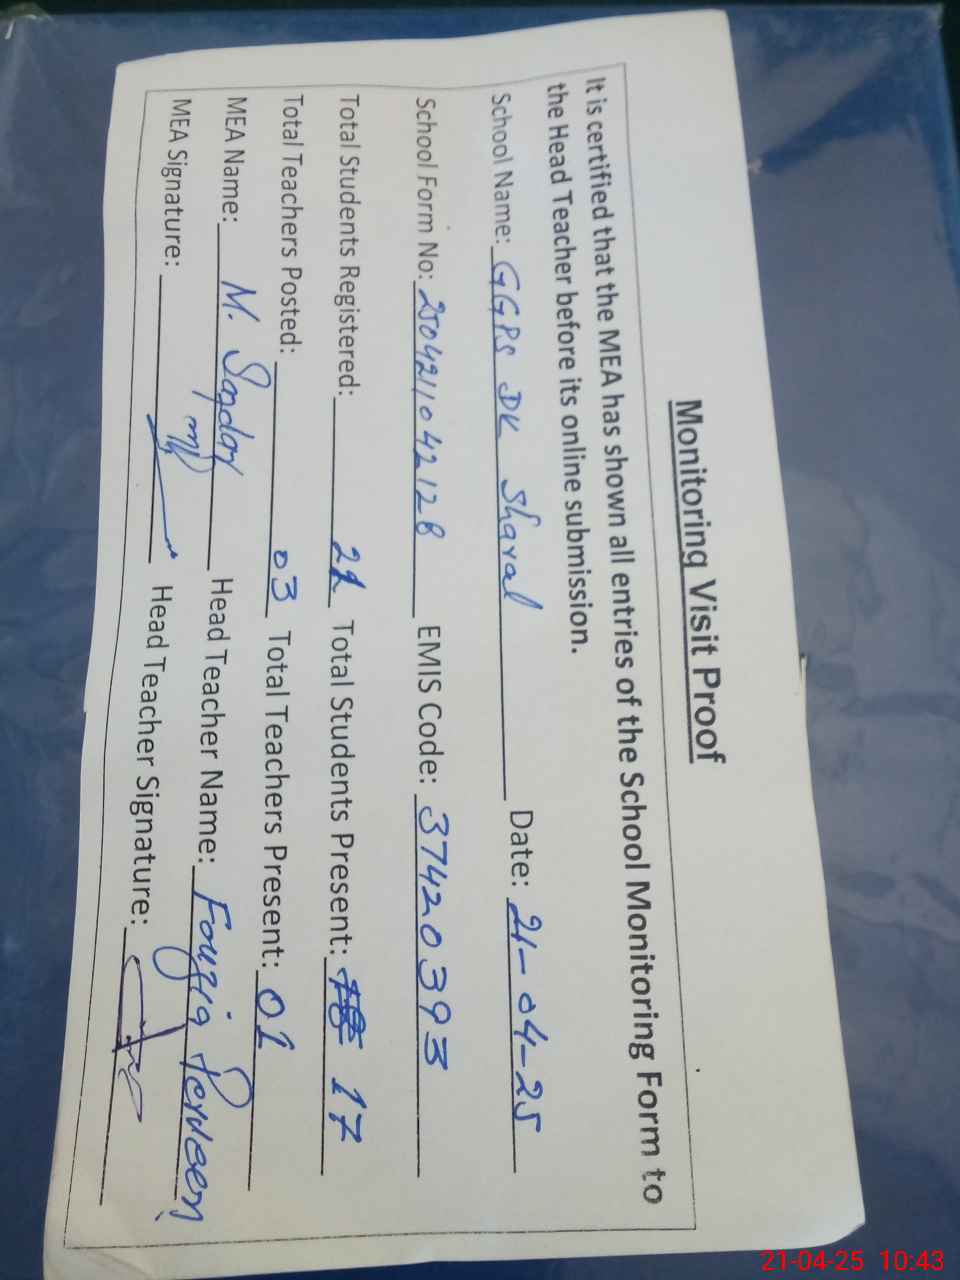 Monitoring Visit Proof
It is certified that the MEA has shown all entries of the School Monitoring Form to
the Head Teacher before its online submission.
School Name: GGPS DK Sharal Date: 21-04-25
School Form No: 2504211042128 EMIS Code: 37420393
Total Students Registered: 21 Total Students Present: 17
Total Teachers Posted: 03 Total Teachers Present: 01
MEA Name: M. Safdar Head Teacher Name: Fouzia Perveen
MEA Signature: Head Teacher Signature:
21-04-25 10:43